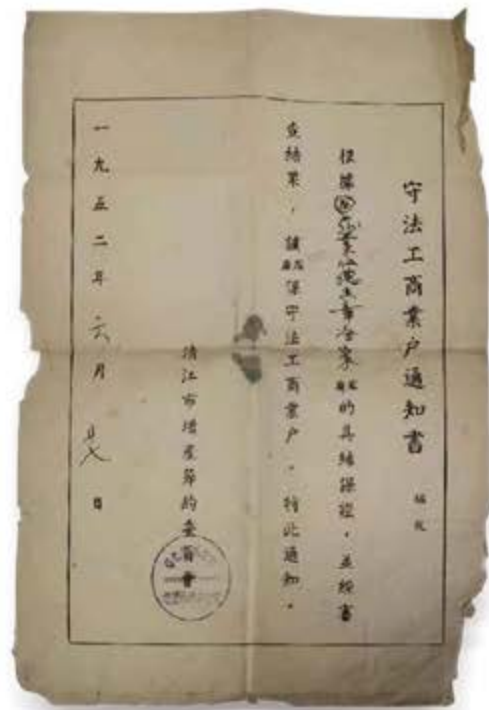 守法工商業户通知書
編號
根據 的具結保證，並經審
查結果，該 係守法工商業户，特此通知。
清江市增產節約委員會
一九五二年六月 日